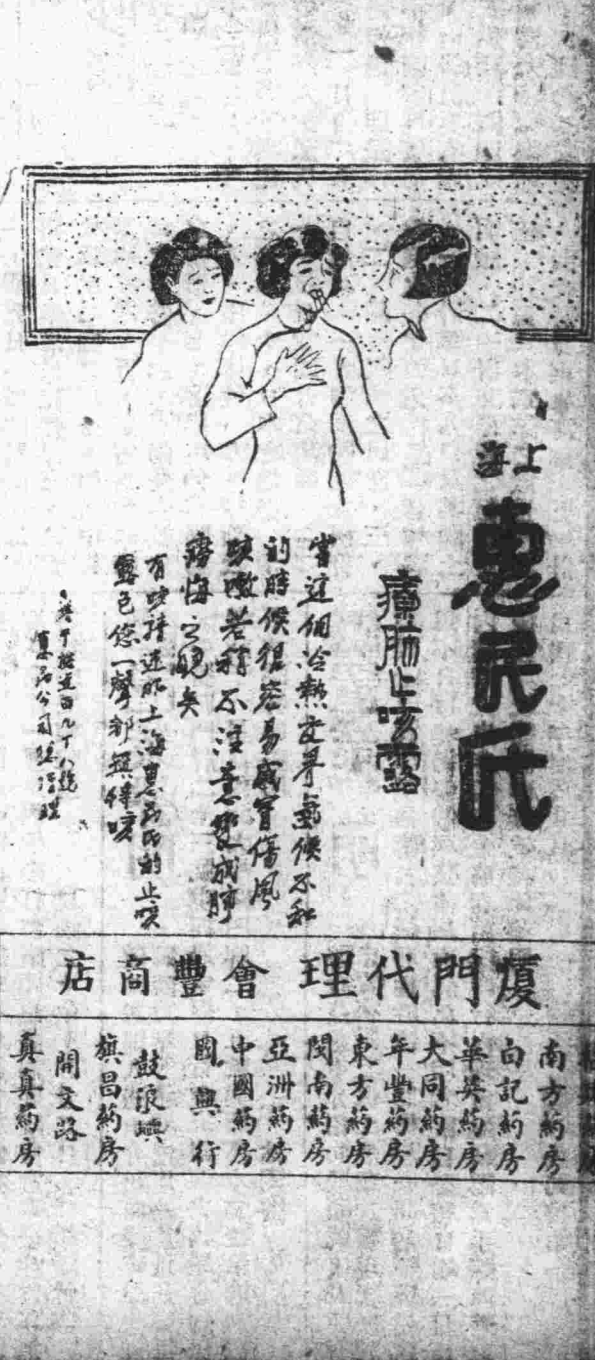 上海
惠民氏
療肺止咳露
當這個冷熱交界氣候不和
的時候很容易感冒傷風
咳嗽若稍不注意變成肺
癆悔之晚矣
有咳請速服上海惠民氏的止咳
露包您一聲都無得咳
廈門代理 會豐商店
南方葯房
向記葯房
華英葯房
大同葯房
年豐葯房
東方葯房
閩南葯房
亞洲葯房
中國葯房
國興行
鼓浪嶼
旗昌葯房
開文路
真真葯房